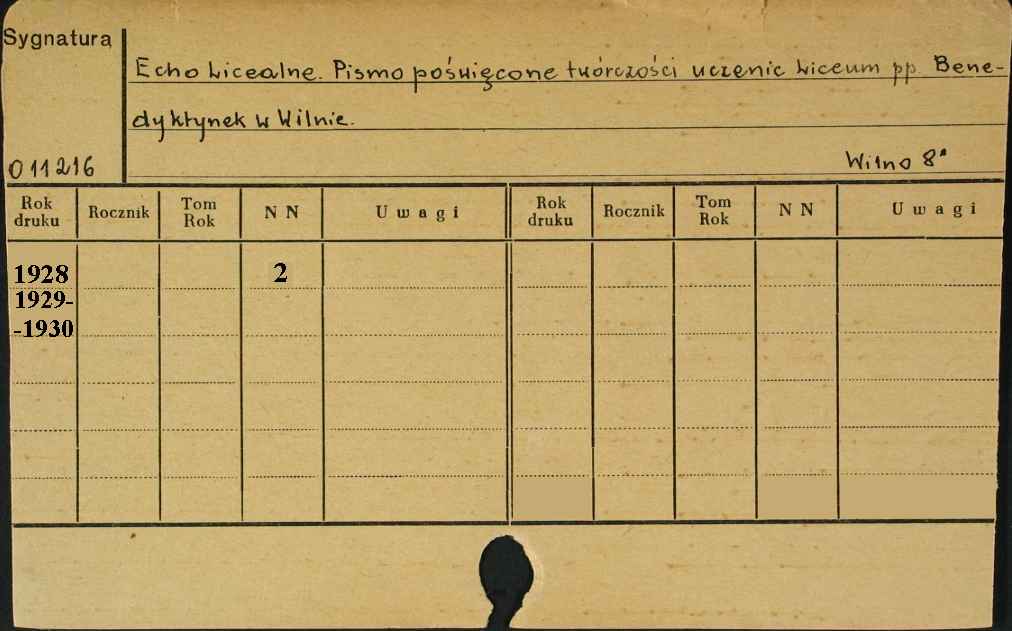 Sygnatura
Echo Licealne. Pismo poświęcone twórczości uczenic Liceum pp. Bene-
dyktynek w Wilnie.
011216
Wilno 8°
Rok druku Rocznik Tom Rok N N Uwagi Rok druku Rocznik Tom Rok N N Uwagi
1928 2
1929-
-1930